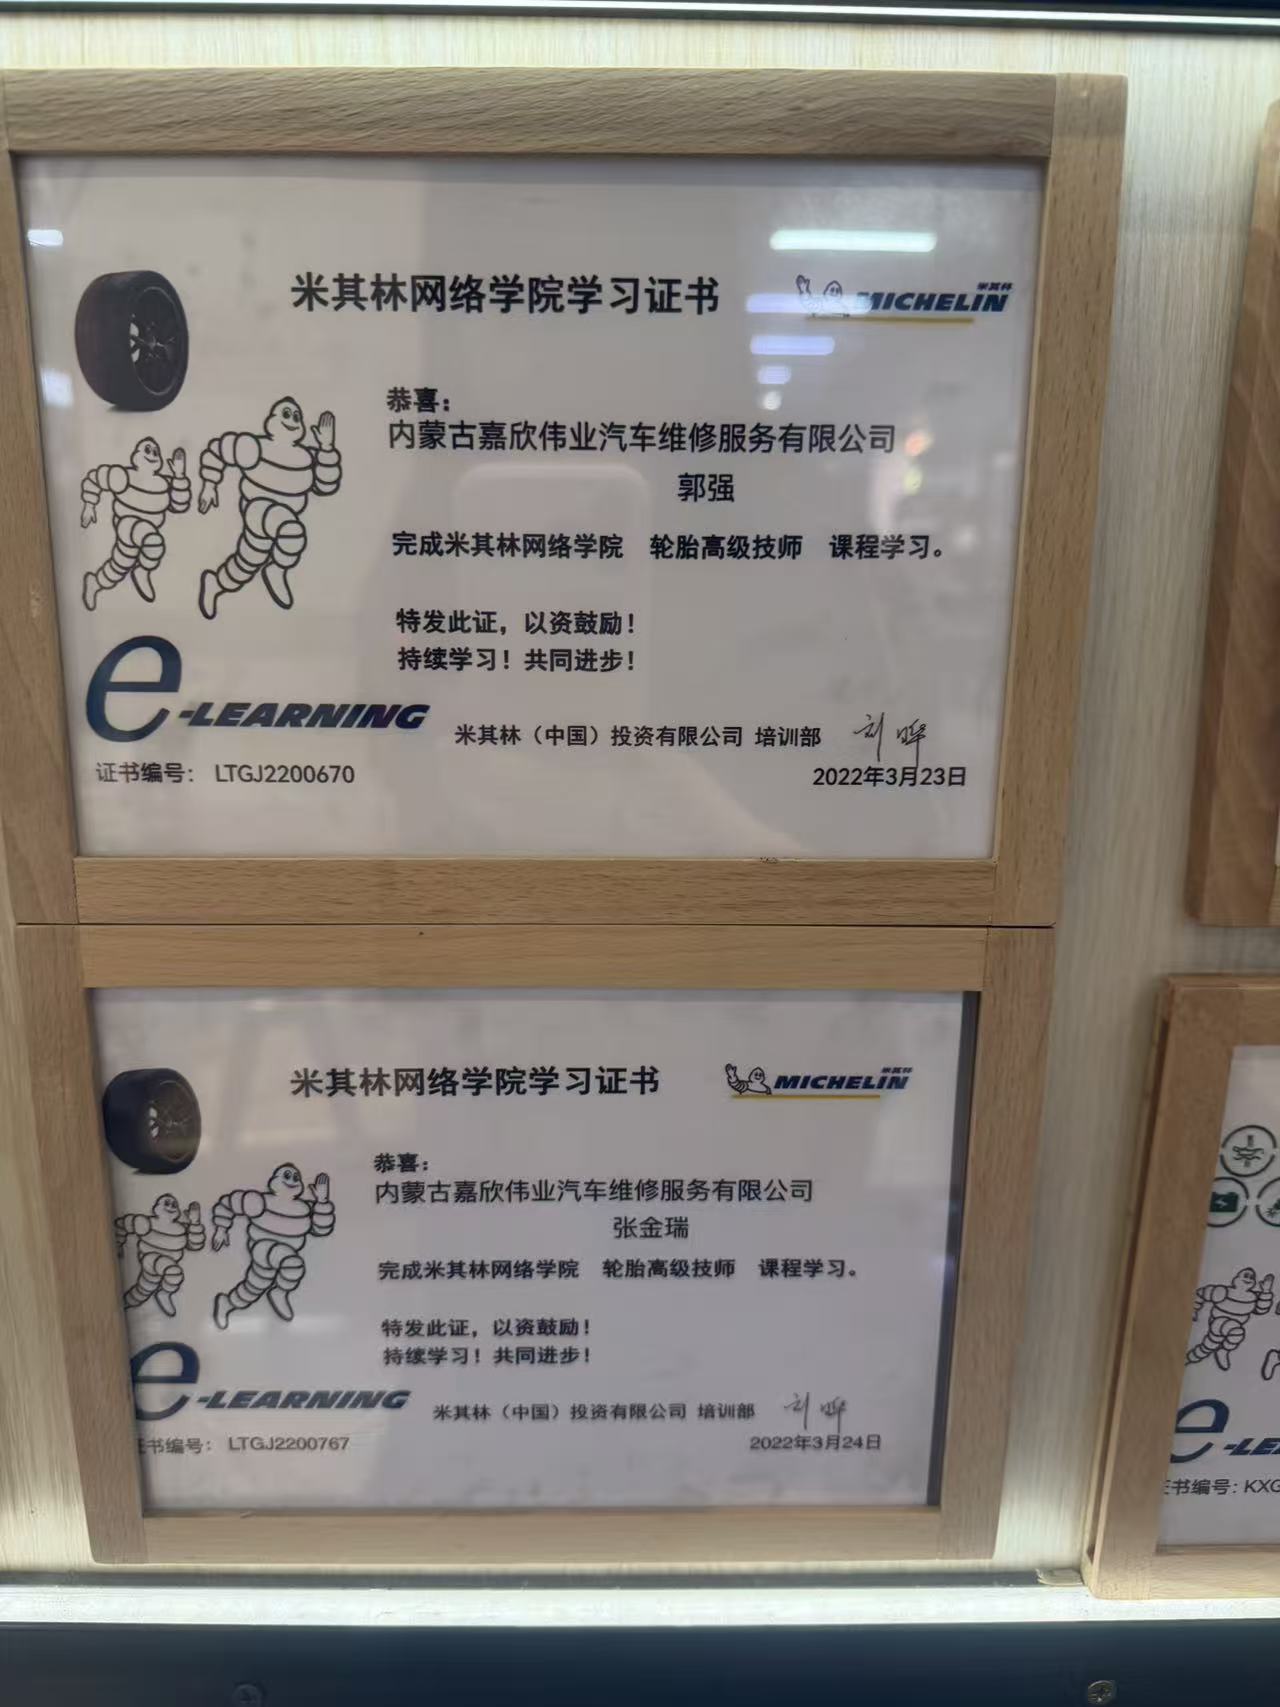 米其林网络学院学习证书
米其林
MICHELIN
恭喜：
内蒙古嘉欣伟业汽车维修服务有限公司
郭强
完成米其林网络学院 轮胎高级技师 课程学习。
特发此证，以资鼓励！
持续学习！共同进步！
e-LEARNING
米其林（中国）投资有限公司 培训部
刘晔
证书编号： LTGJ2200670
2022年3月23日
米其林网络学院学习证书
米其林
MICHELIN
恭喜：
内蒙古嘉欣伟业汽车维修服务有限公司
张金瑞
完成米其林网络学院 轮胎高级技师 课程学习。
特发此证，以资鼓励！
持续学习！共同进步！
e-LEARNING
米其林（中国）投资有限公司 培训部
刘晔
书编号： LTGJ2200767
2022年3月24日
e-LE
书编号：KXG